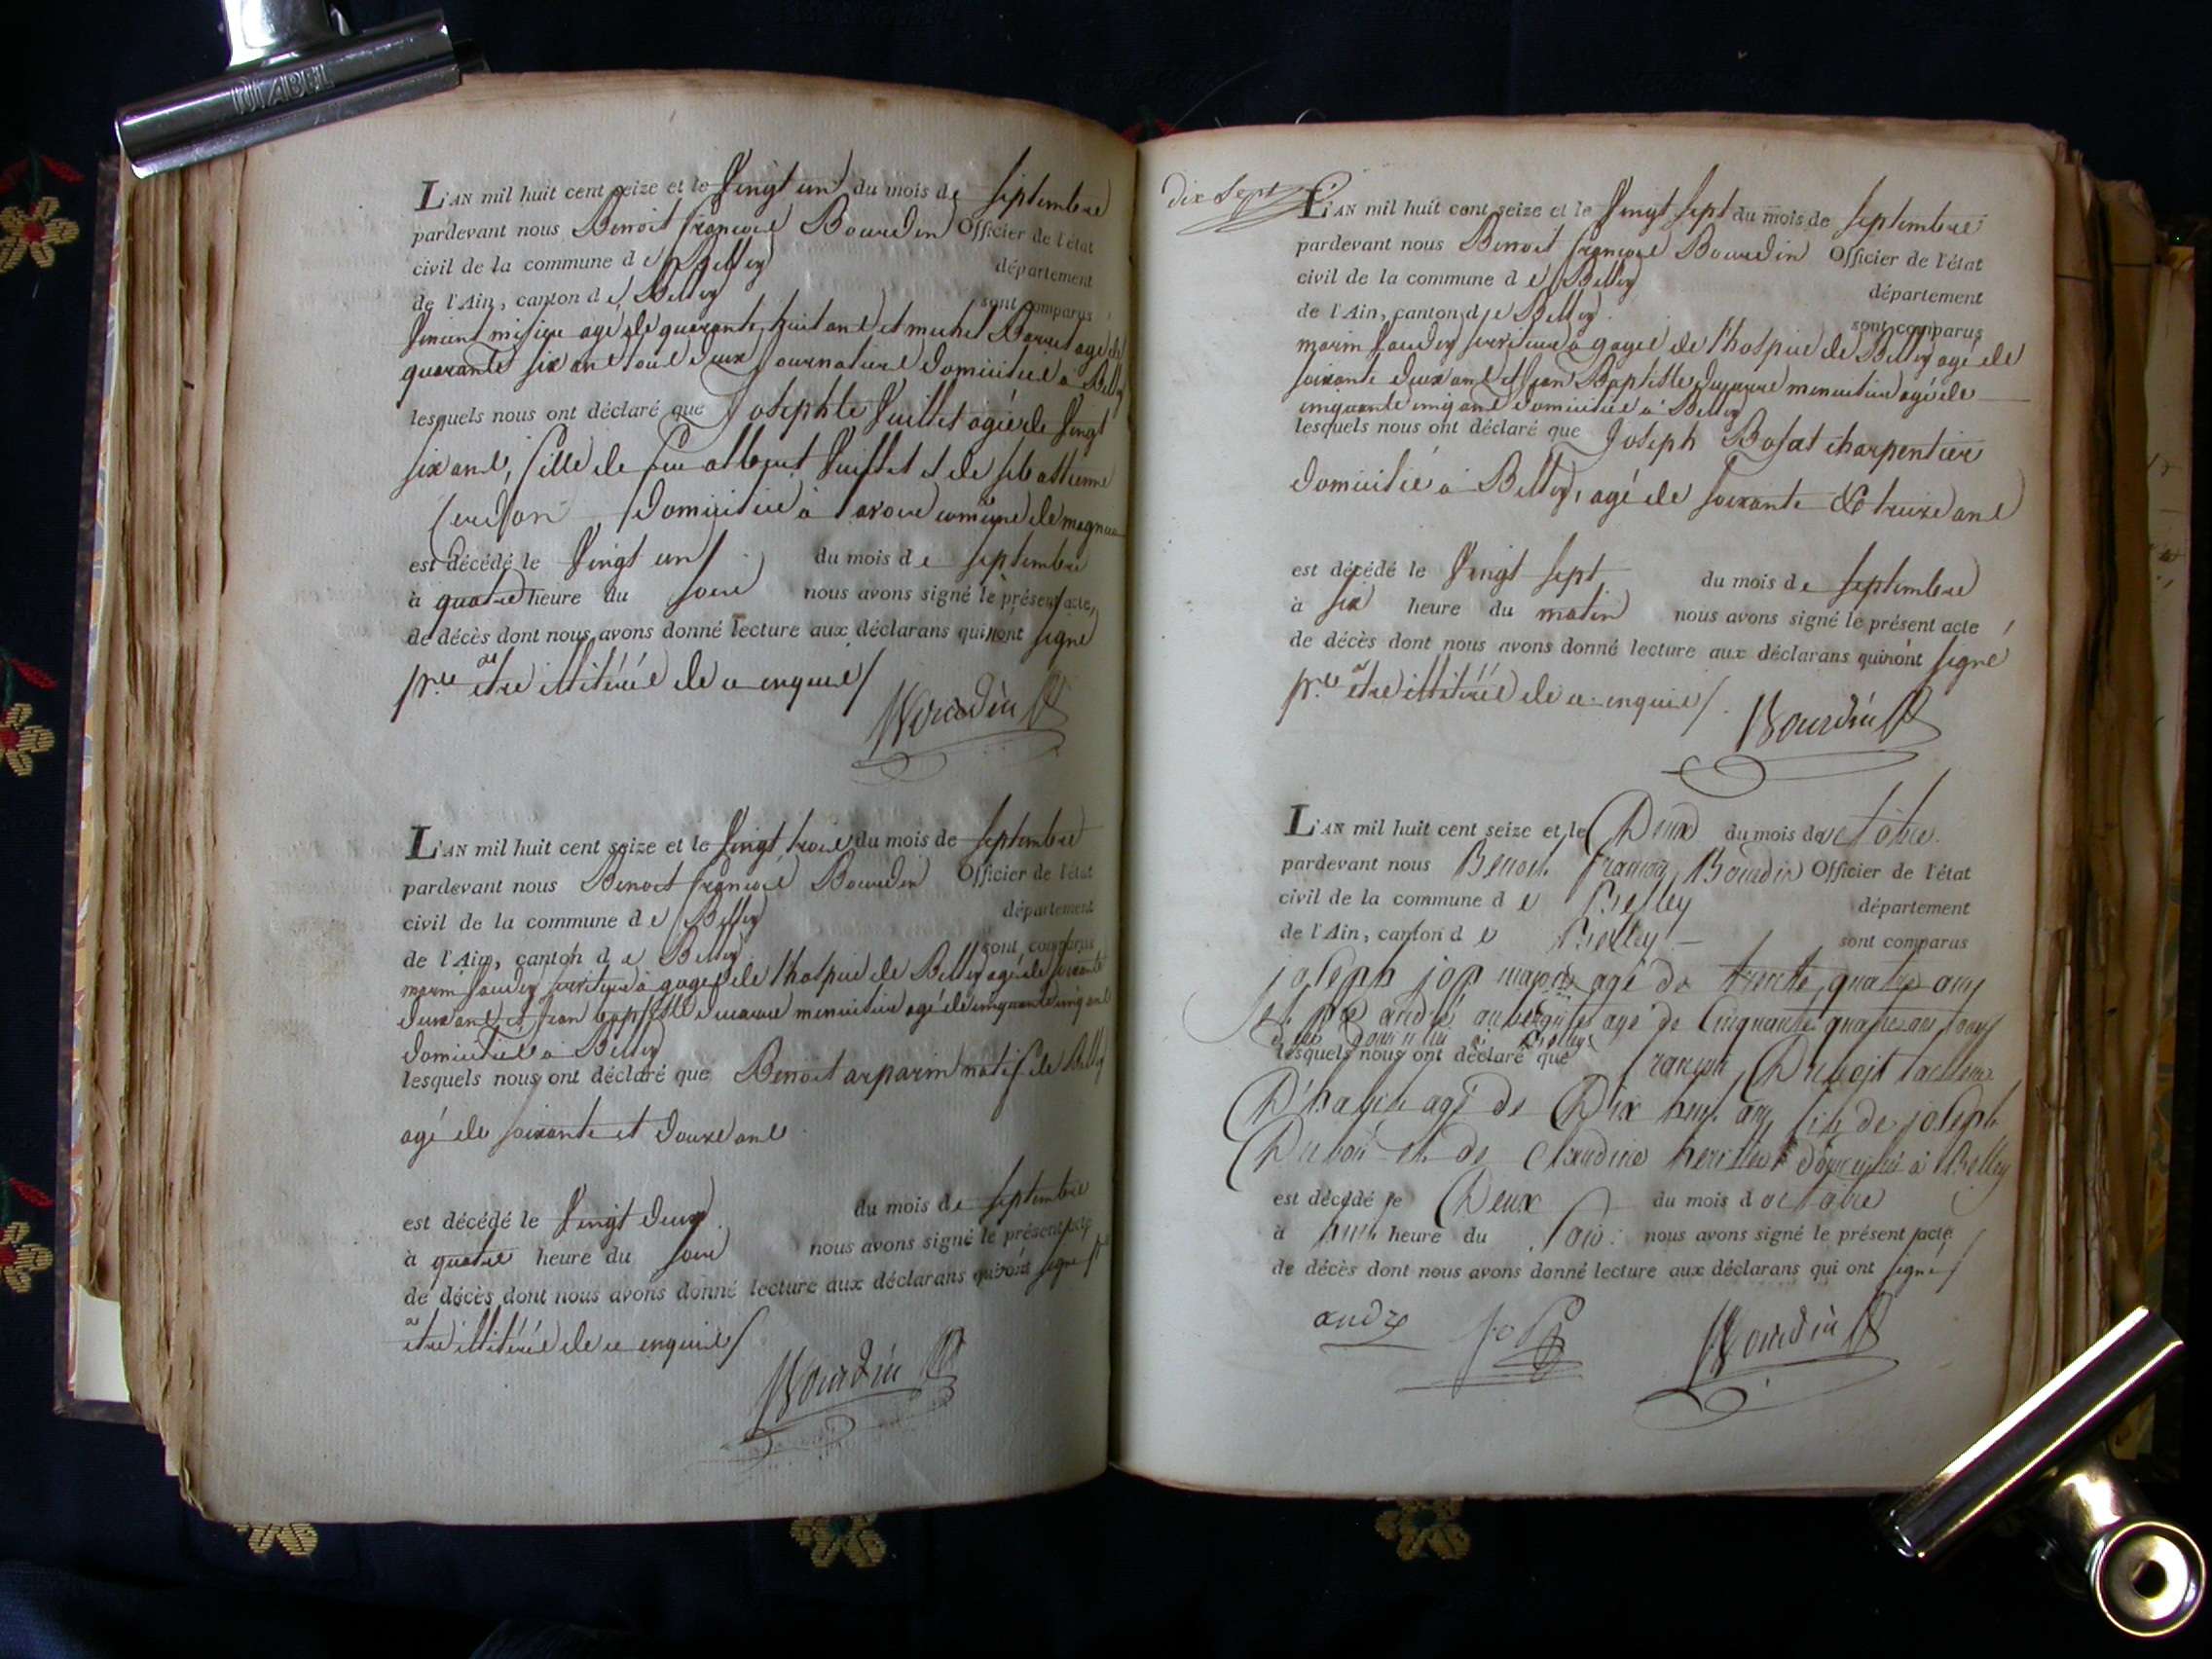 JAPEL
L'AN mil huit cent seize et le Vingt un du mois de septembre
pardevant nous Benoit françois Bourdin Officier de l'état
civil de la commune de Belley département
de l'Ain, canton de Belley sont comparus
agé de quarante huit ans et michel Barret agé de
quarante six ans tous deux journaliers domiciliés à Belley
lesquels nous ont déclaré que Josephte Vuillet agée de vingt
six ans, fille de feu Vuillet et de sébastienne
domiciliée à comune de magnieu
est décédé le Vingt un du mois de septembre
à quatre heure du soir nous avons signé le présent acte,
de décès dont nous avons donné lecture aux déclarans qui nont signé
pr. être illitérés de ce enquis
Bourdin
L'AN mil huit cent seize et le Vingt trois du mois de septembre
pardevant nous Benoit françois Bourdin Officier de l'état
civil de la commune de Belley département
de l'Ain, canton de Belley sont comparus
marin serviteur à gages de l'hospice de Belley agé de soixante
deux ans et jean baptiste menuisier agé de cinquante cinq ans
domiciliés à Belley
lesquels nous ont déclaré que Benoit arparin natif de Belley
agé de soixante et douze ans
est décédé le Vingt deux du mois de septembre
à quatre heure du soir nous avons signé le présent acte
de décès dont nous avons donné lecture aux déclarans qui nont signé pr
être illitérés de ce enquis
Bourdin
dix sept
L'AN mil huit cent seize et le Vingt sept du mois de septembre
pardevant nous Benoit françois Bourdin Officier de l'état
civil de la commune de Belley département
de l'Ain, canton de Belley sont comparus
marin serviteur à gages de l'hospice de Belley agé de
soixante deux ans et jean Baptiste menuisier agé de
cinquante cinq ans domiciliés à Belley
lesquels nous ont déclaré que Joseph Bosat charpentier
domicilié à Belley, agé de soixante & treize ans
est décédé le Vingt sept du mois de septembre
à six heure du matin nous avons signé le présent acte
de décès dont nous avons donné lecture aux déclarans qui nont signé
pr. être illitérés de ce enquis
Bourdin
L'AN mil huit cent seize et le Deux du mois doctobre
pardevant nous Benoit françois Bourdin Officier de l'état
civil de la commune de Belley département
de l'Ain, canton de Belley sont comparus
joseph jop maçon agé de trente quatre ans
et andré aubergiste agé de Cinquante quatre ans tous
deux domiciliés à Belley
lesquels nous ont déclaré que françois Dubois tailleur
D'habits agé de Dix huit ans fils de joseph
Dubois et de Claudine domicilié à Belley
est décédé le Deux du mois d octobre
à heure du Soir nous avons signé le présent acte
de décès dont nous avons donné lecture aux déclarans qui ont signé
andré jop Bourdin